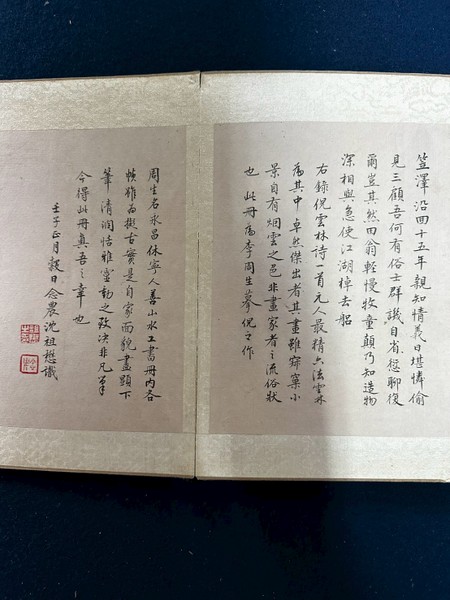 笠澤沿回十五年親知情義日堪憐偷
見三顧吾何有俗士群譏自省愆聊復
爾豈其然四翁輕慢牧童顛乃知造物
深相與急使江湖棹去船
右錄倪雲林詩一首元人最精六法雲林
為其中卓然傑出者其畫雖寂寞小
景自有烟雲之色非畫家者之流俗狀
也此冊為李周生摹倪之作
周生名永昌休寧人善山水工書冊內各
幀雖為擬古實是自家面貌畫題下
筆清潤恬雅靈動之致決非凡筆
今得此冊真吾之幸也
壬子正月穀日念農沈祖懋識